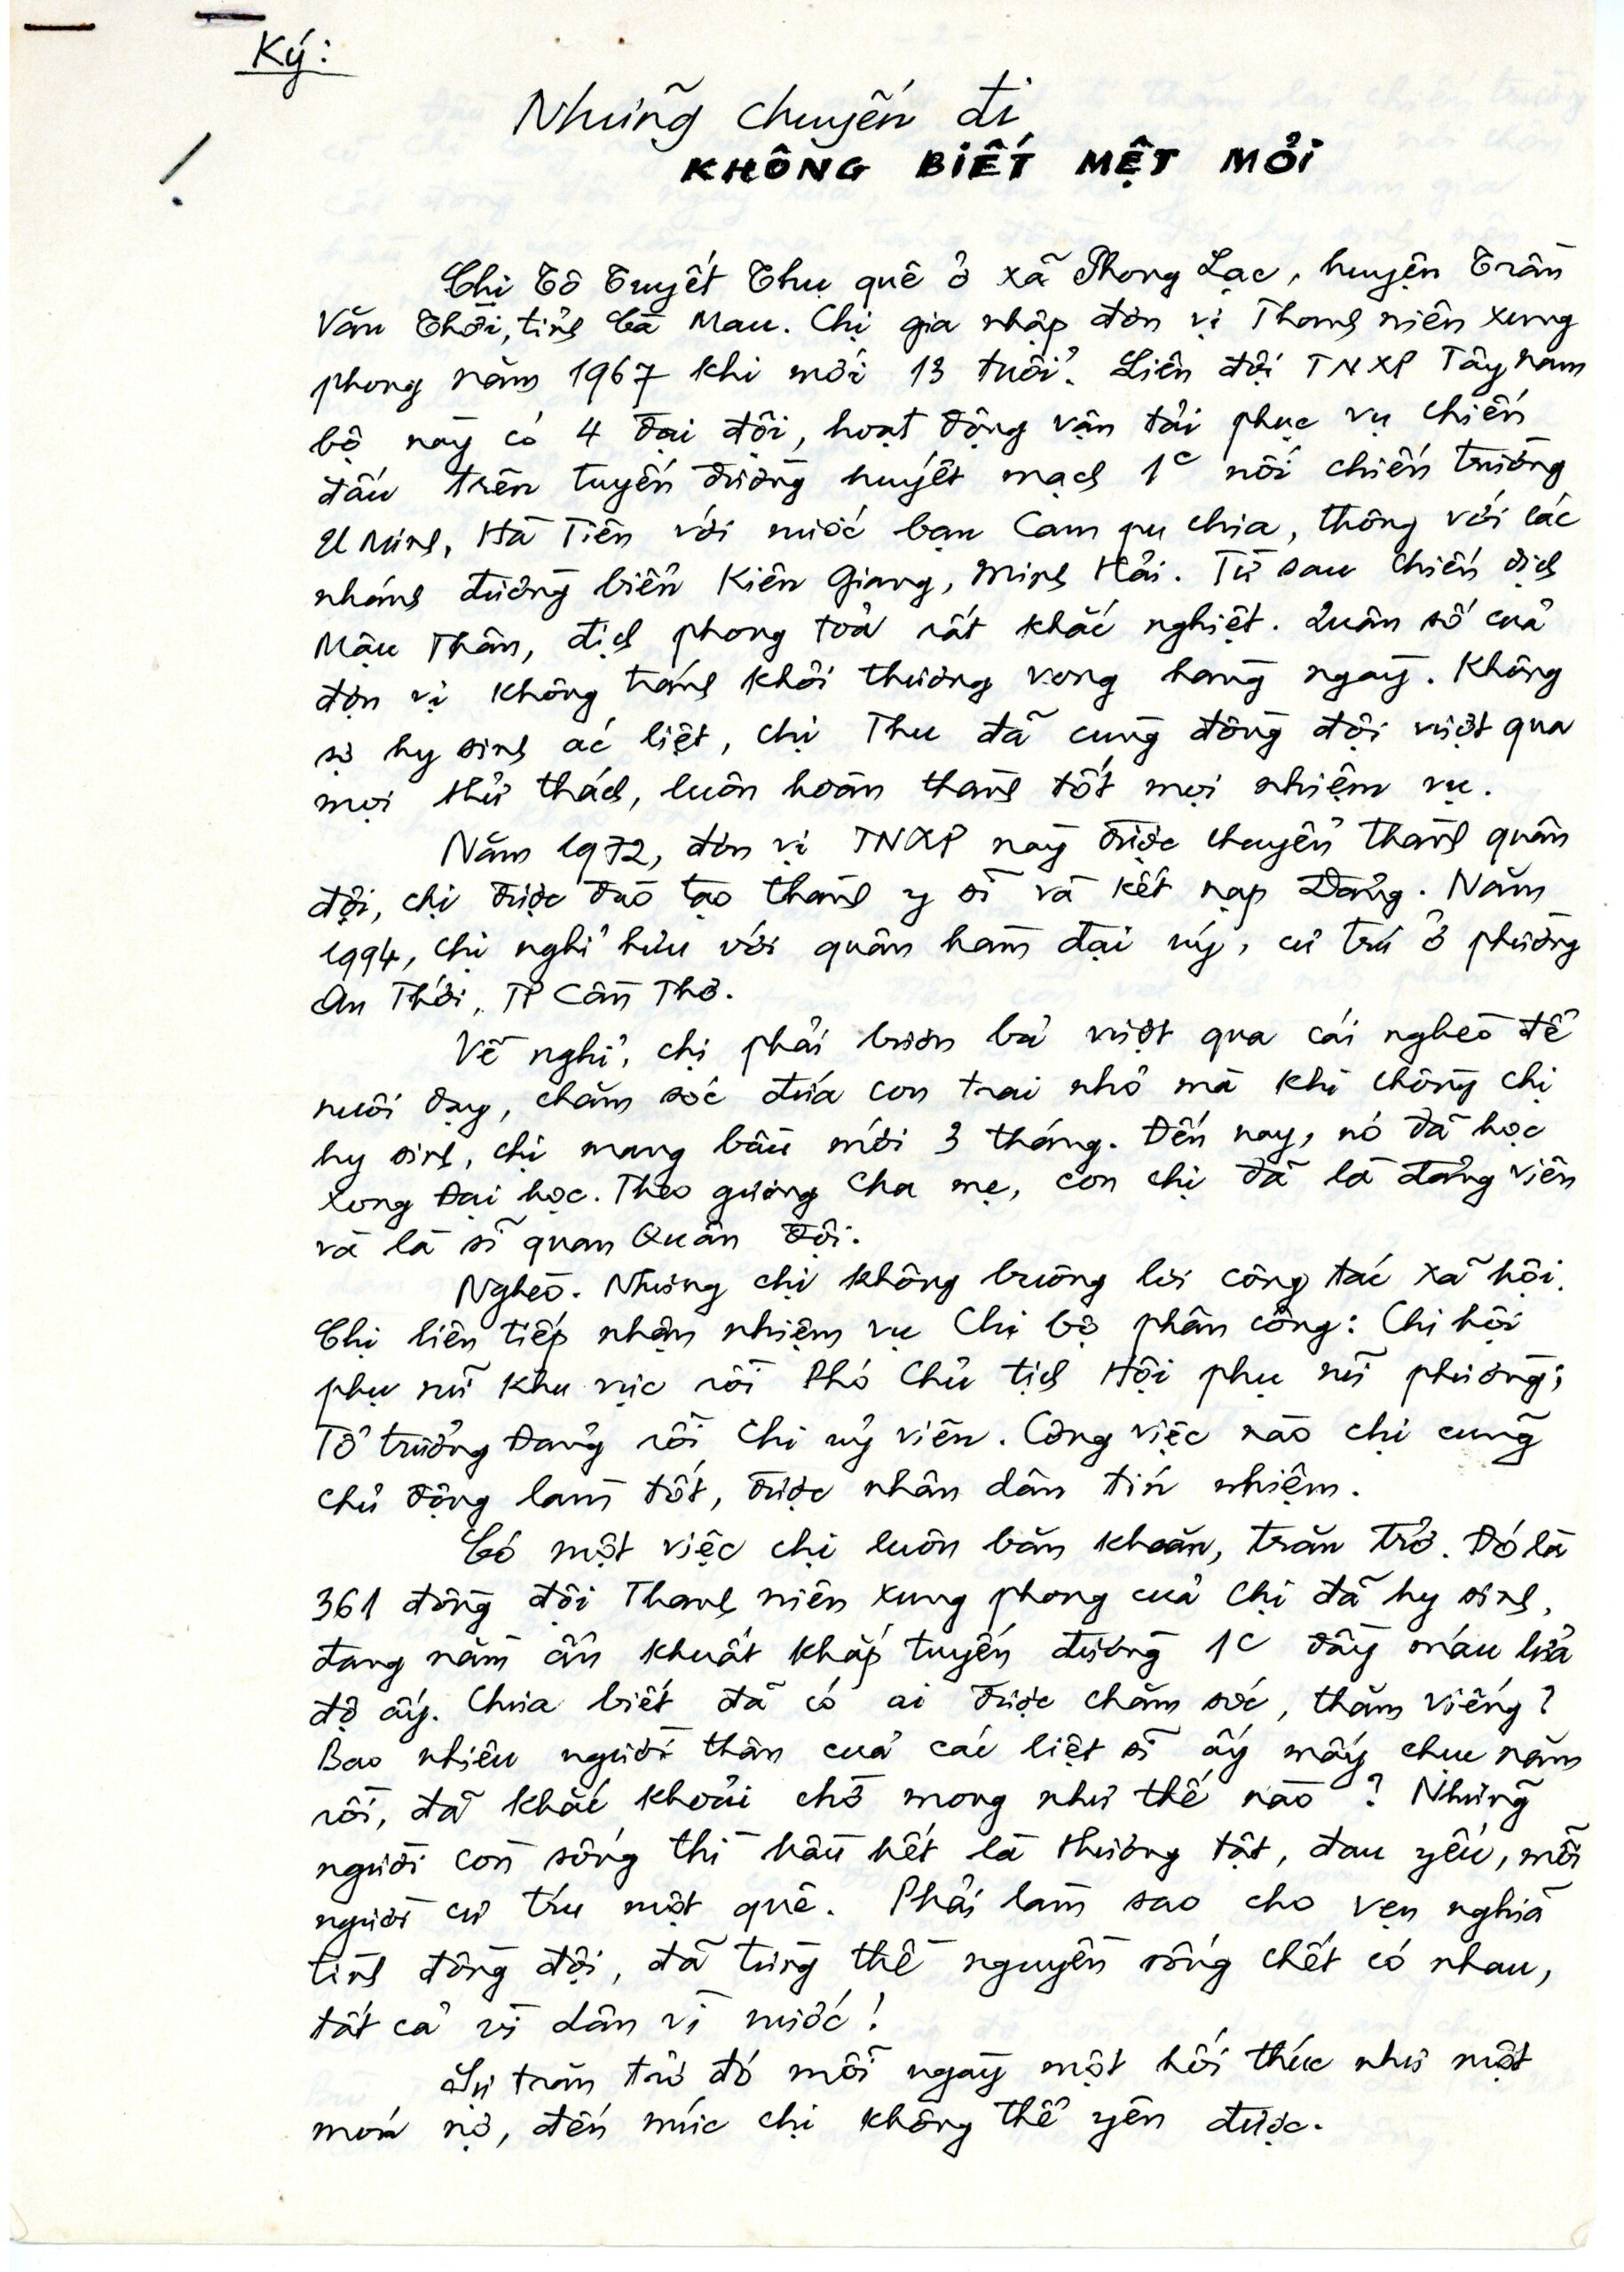 Ký:
Những chuyến đi
KHÔNG BIẾT MỆT MỎI
Chị Tô Tuyết Thu quê ở xã Phong Lạc, huyện Trần
Văn Thời, tỉnh Cà Mau. Chị gia nhập đơn vị Thanh niên xung
phong năm 1967 khi mới 13 tuổi. Liên đội TNXP Tây nam
bộ này có 4 đại đội, hoạt động vận tải phục vụ chiến
đấu trên tuyến đường huyết mạch 1c nối chiến trường
U Minh, Hà Tiên với nước bạn Cam pu chia, thông với các
nhánh đường biển Kiên Giang, Minh Hải. Từ sau chiến dịch
Mậu Thân, địch phong toả rất khắc nghiệt. Quân số của
đơn vị không tránh khỏi thương vong hàng ngày. Không
sợ hy sinh ác liệt, chị Thu đã cùng đồng đội vượt qua
mọi thử thách, luôn hoàn thành tốt mọi nhiệm vụ.
Năm 1972, đơn vị TNXP này được chuyển thành quân
đội, chị được đào tạo thành y sĩ và kết nạp Đảng. Năm
1994, chị nghỉ hưu với quân hàm đại uý, cư trú ở phường
An Thới, TP Cần Thơ.
Về nghỉ, chị phải bươn bả vượt qua cái nghèo để
nuôi dạy, chăm sóc đứa con trai nhỏ mà khi chồng chị
hy sinh, chị mang bầu mới 3 tháng. Đến nay, nó đã học
xong Đại học. Theo gương cha mẹ, con chị đã là đảng viên
và là sĩ quan Quân đội.
Nghèo. Nhưng chị không buông lơi công tác xã hội.
Chị liên tiếp nhận nhiệm vụ Chi bộ phân công: Chi hội
phụ nữ khu vực rồi Phó Chủ tịch Hội phụ nữ phường;
Tổ trưởng Đảng rồi Chi uỷ viên. Công việc nào chị cũng
chủ động làm tốt, được nhân dân tín nhiệm.
Có một việc chị luôn băn khoăn, trăn trở. Đó là
361 đồng đội Thanh niên xung phong của chị đã hy sinh,
đang nằm ẩn khuất khắp tuyến đường 1C đầy máu lửa
độ ấy. Chưa biết đã có ai được chăm sóc, thăm viếng?
Bao nhiêu người thân của các liệt sĩ ấy mấy chục năm
rồi, đã khắc khoải chờ mong như thế nào? Những
người còn sống thì hầu hết là thương tật, đau yếu, mỗi
người cư trú một quê. Phải làm sao cho vẹn nghĩa
tình đồng đội, đã từng thề nguyền sống chết có nhau,
tất cả vì dân vì nước!
Sự trăn trở đó mỗi ngày một hối thúc như một
món nợ, đến mức chị không thể yên được.